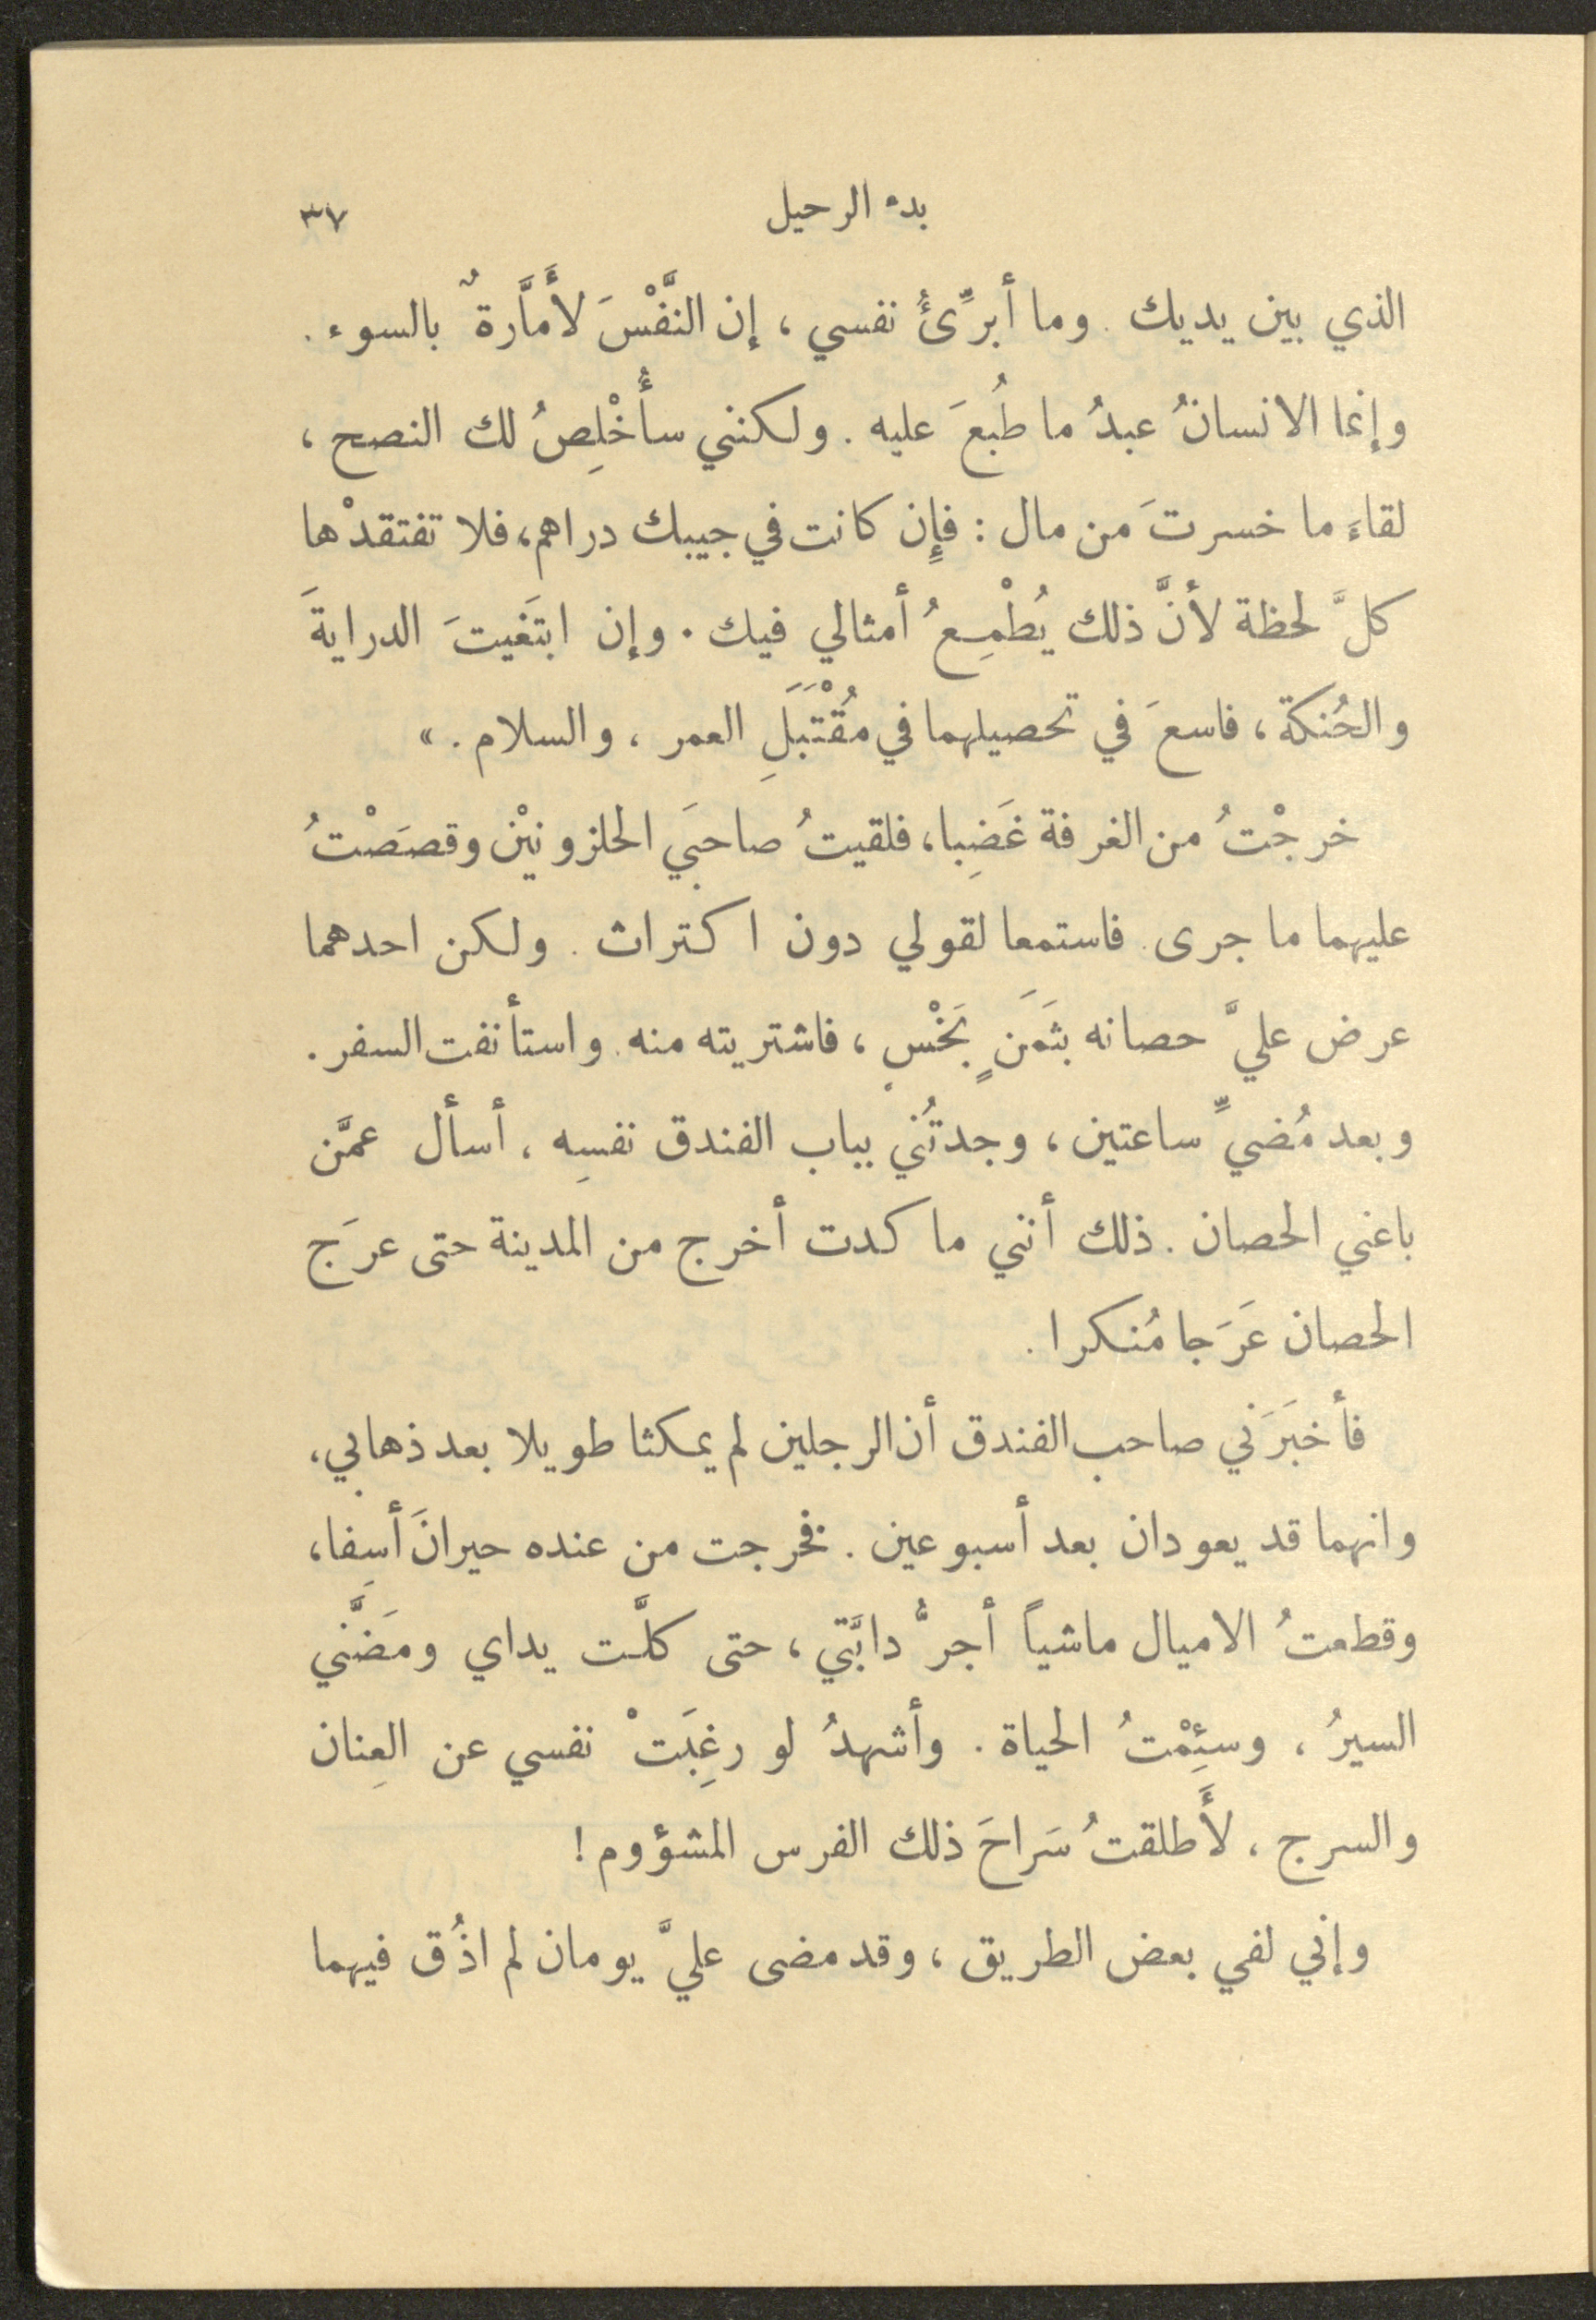 بدء الرحيل ٣٧
الذي بين يديك . وما أبرِّئُ نفسي ، إن النَّفْسَ لأَمَّارةٌ بالسوء .
وإنما الانسانُ عبدُ ما طُبعَ عليه . ولكنني سأُخْلِصُ لك النصح ،
لقاءَ ما خسرتَ من مال : فإِن كانت في جيبك دراهم، فلا تفتقدْها
كلَّ لحظة لأنَّ ذلك يُطْمِعُ أمثالي فيك . وإن ابتَغيتَ الدرايةَ
والحُنكة ، فاسعَ في تحصيلهما في مُقْتَبَلِ العمر ، والسلام . »
خرجْتُ من الغرفة غَضِبا، فلقيتُ صاحبَي الحلزونيْن وقصَصْتُ
عليهما ما جرى . فاستمعا لقولي دون اكتراث . ولكن احدهما
عرض عليَّ حصانه بثَمَنٍ بَخْسٍ ، فاشتريته منه . واستأنفت السفر .
وبعد مُضيِّ ساعتين ، وجدتُني بباب الفندق نفسِه ، أسأل عمَّن
باعني الحصان . ذلك أنني ما كدت أخرج من المدينة حتى عرَج
الحصان عَرَجا مُنكرا .
فأخبَرَني صاحب الفندق أن الرجلين لم يمكثا طويلا بعد ذهابي،
وانهما قد يعودان بعد أسبوعين . فخرجت من عنده حيرانَ أسِفا،
وقطعتُ الاميال ماشياً أجرُّ دابَّتي ، حتى كلَّت يداي ومَضَّني
السيرُ ، وسئِمْتُ الحياة . وأشهدُ لو رغِبَتْ نفسي عن العِنان
والسرج ، لأَطلقتُ سَراحَ ذلك الفرس المشؤوم !
وإني لفي بعض الطريق ، وقد مضى عليَّ يومان لم اذُق فيهما